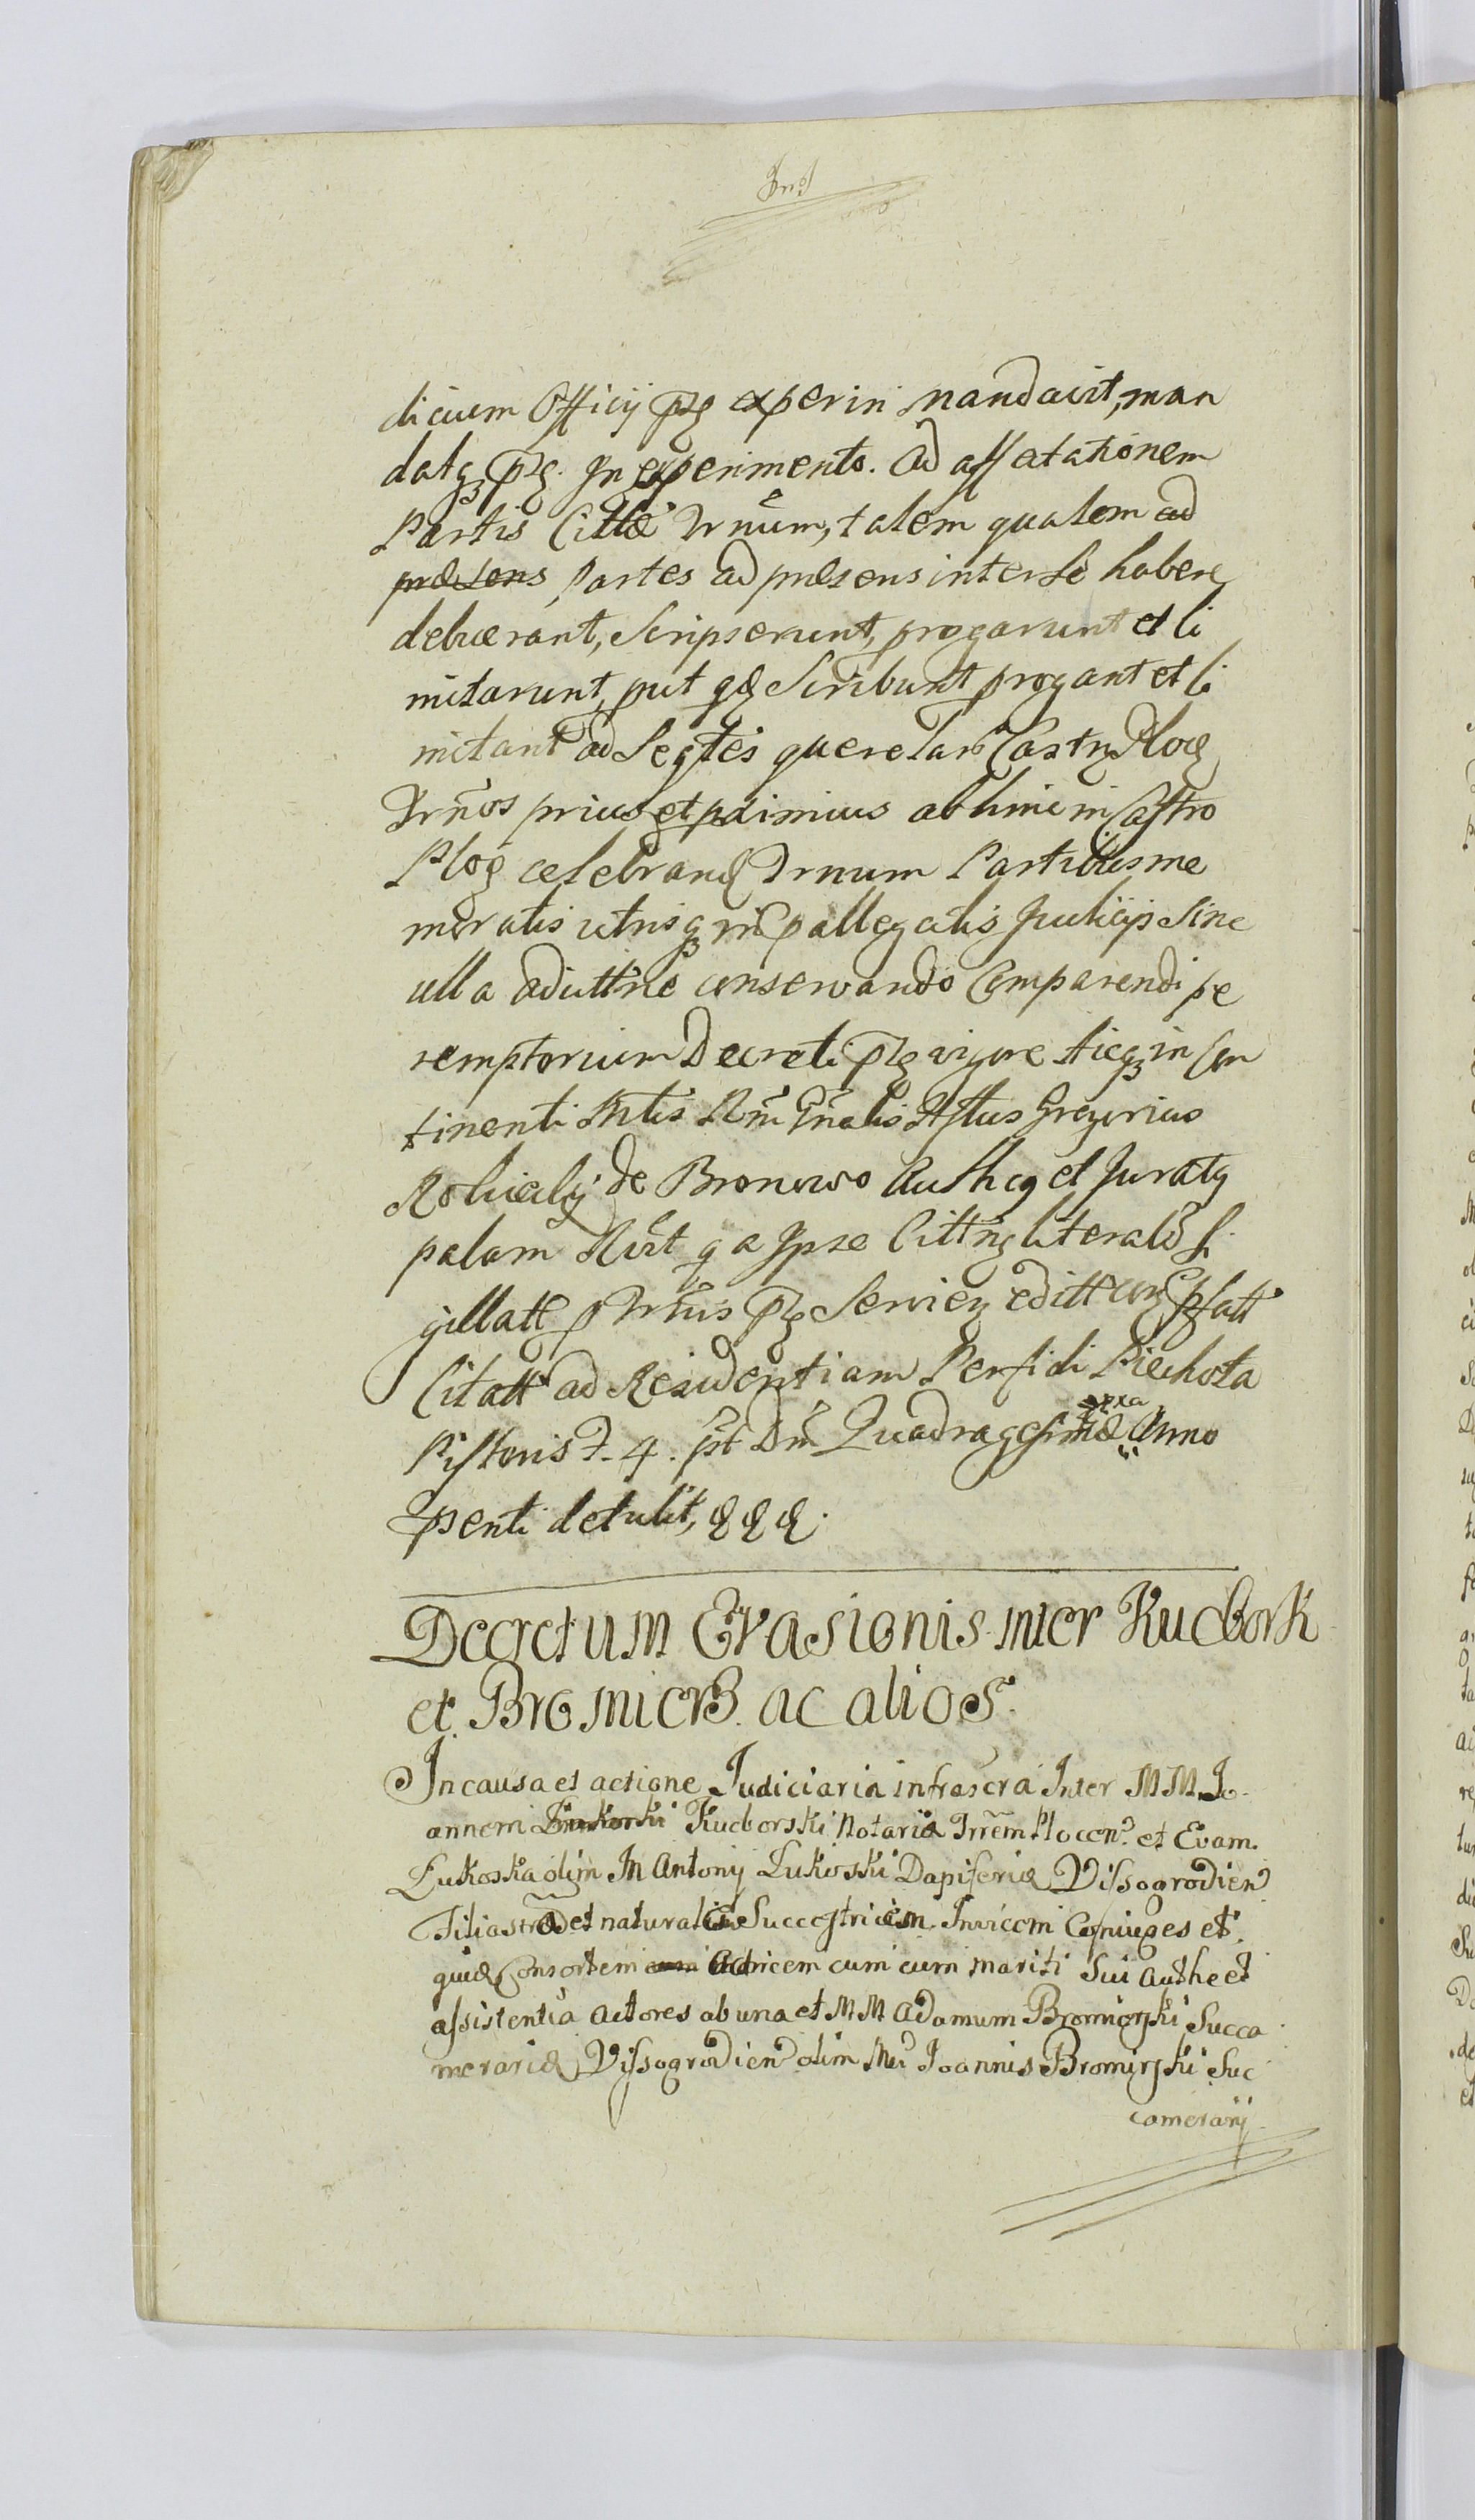 dicium Officij pns experiri mandavit, man
datqz pns. In experimento. Ad affectationem
Partis Cittae Trnum, talem qualem ad
praesens Partes ad praesens inter se habere
debuerant, Scripserunt, progarunt et li
mitarunt, put qdz Scribunt progant et li
mitant ad Seqtes querelar Castr Ploc
Trnos prius et primius ab hinc in Castro
Ploc celebrand Trnum Partibus me
moratis utrisqz allegatis Judicijs Sine
ulla aducttne conservando Comparendi pe
remptorium Decreti pns vigore hicqz in Con
tinenti Mtis Rm Gnalis Astus Gregorius
de Bronowo Authcq et Juratq
palam Rcit qa Ipse Cittnes literales Si
gillatt p Trnis pns Servien editt
Citatt ad Residentiam Perfidi Piechota
Pistoris F. 4. pt Dm Quadragesimae Anno
psenti detulit, & & &.
Decretum Evasionis inter Kucbork
et Bromiers. ac alios.
In causa et actione Judiciaria infrascra Inter MM. Jo
annem Kucborski Notariu Trrem Plocen. et Evam.
Lukoska olim M Antonij Lukoski Dapiferi Vissogrodien
Filiastra et naturalem Successtricem Invicem Coniuges et
quide Consortem Actricem cum cum mariti Sui Authe et
assistentia actores ab una et MM Adamum Bromierski Succa
merariu Vissogrodien olim Mci Joannis Bromirski Suc
camerarij